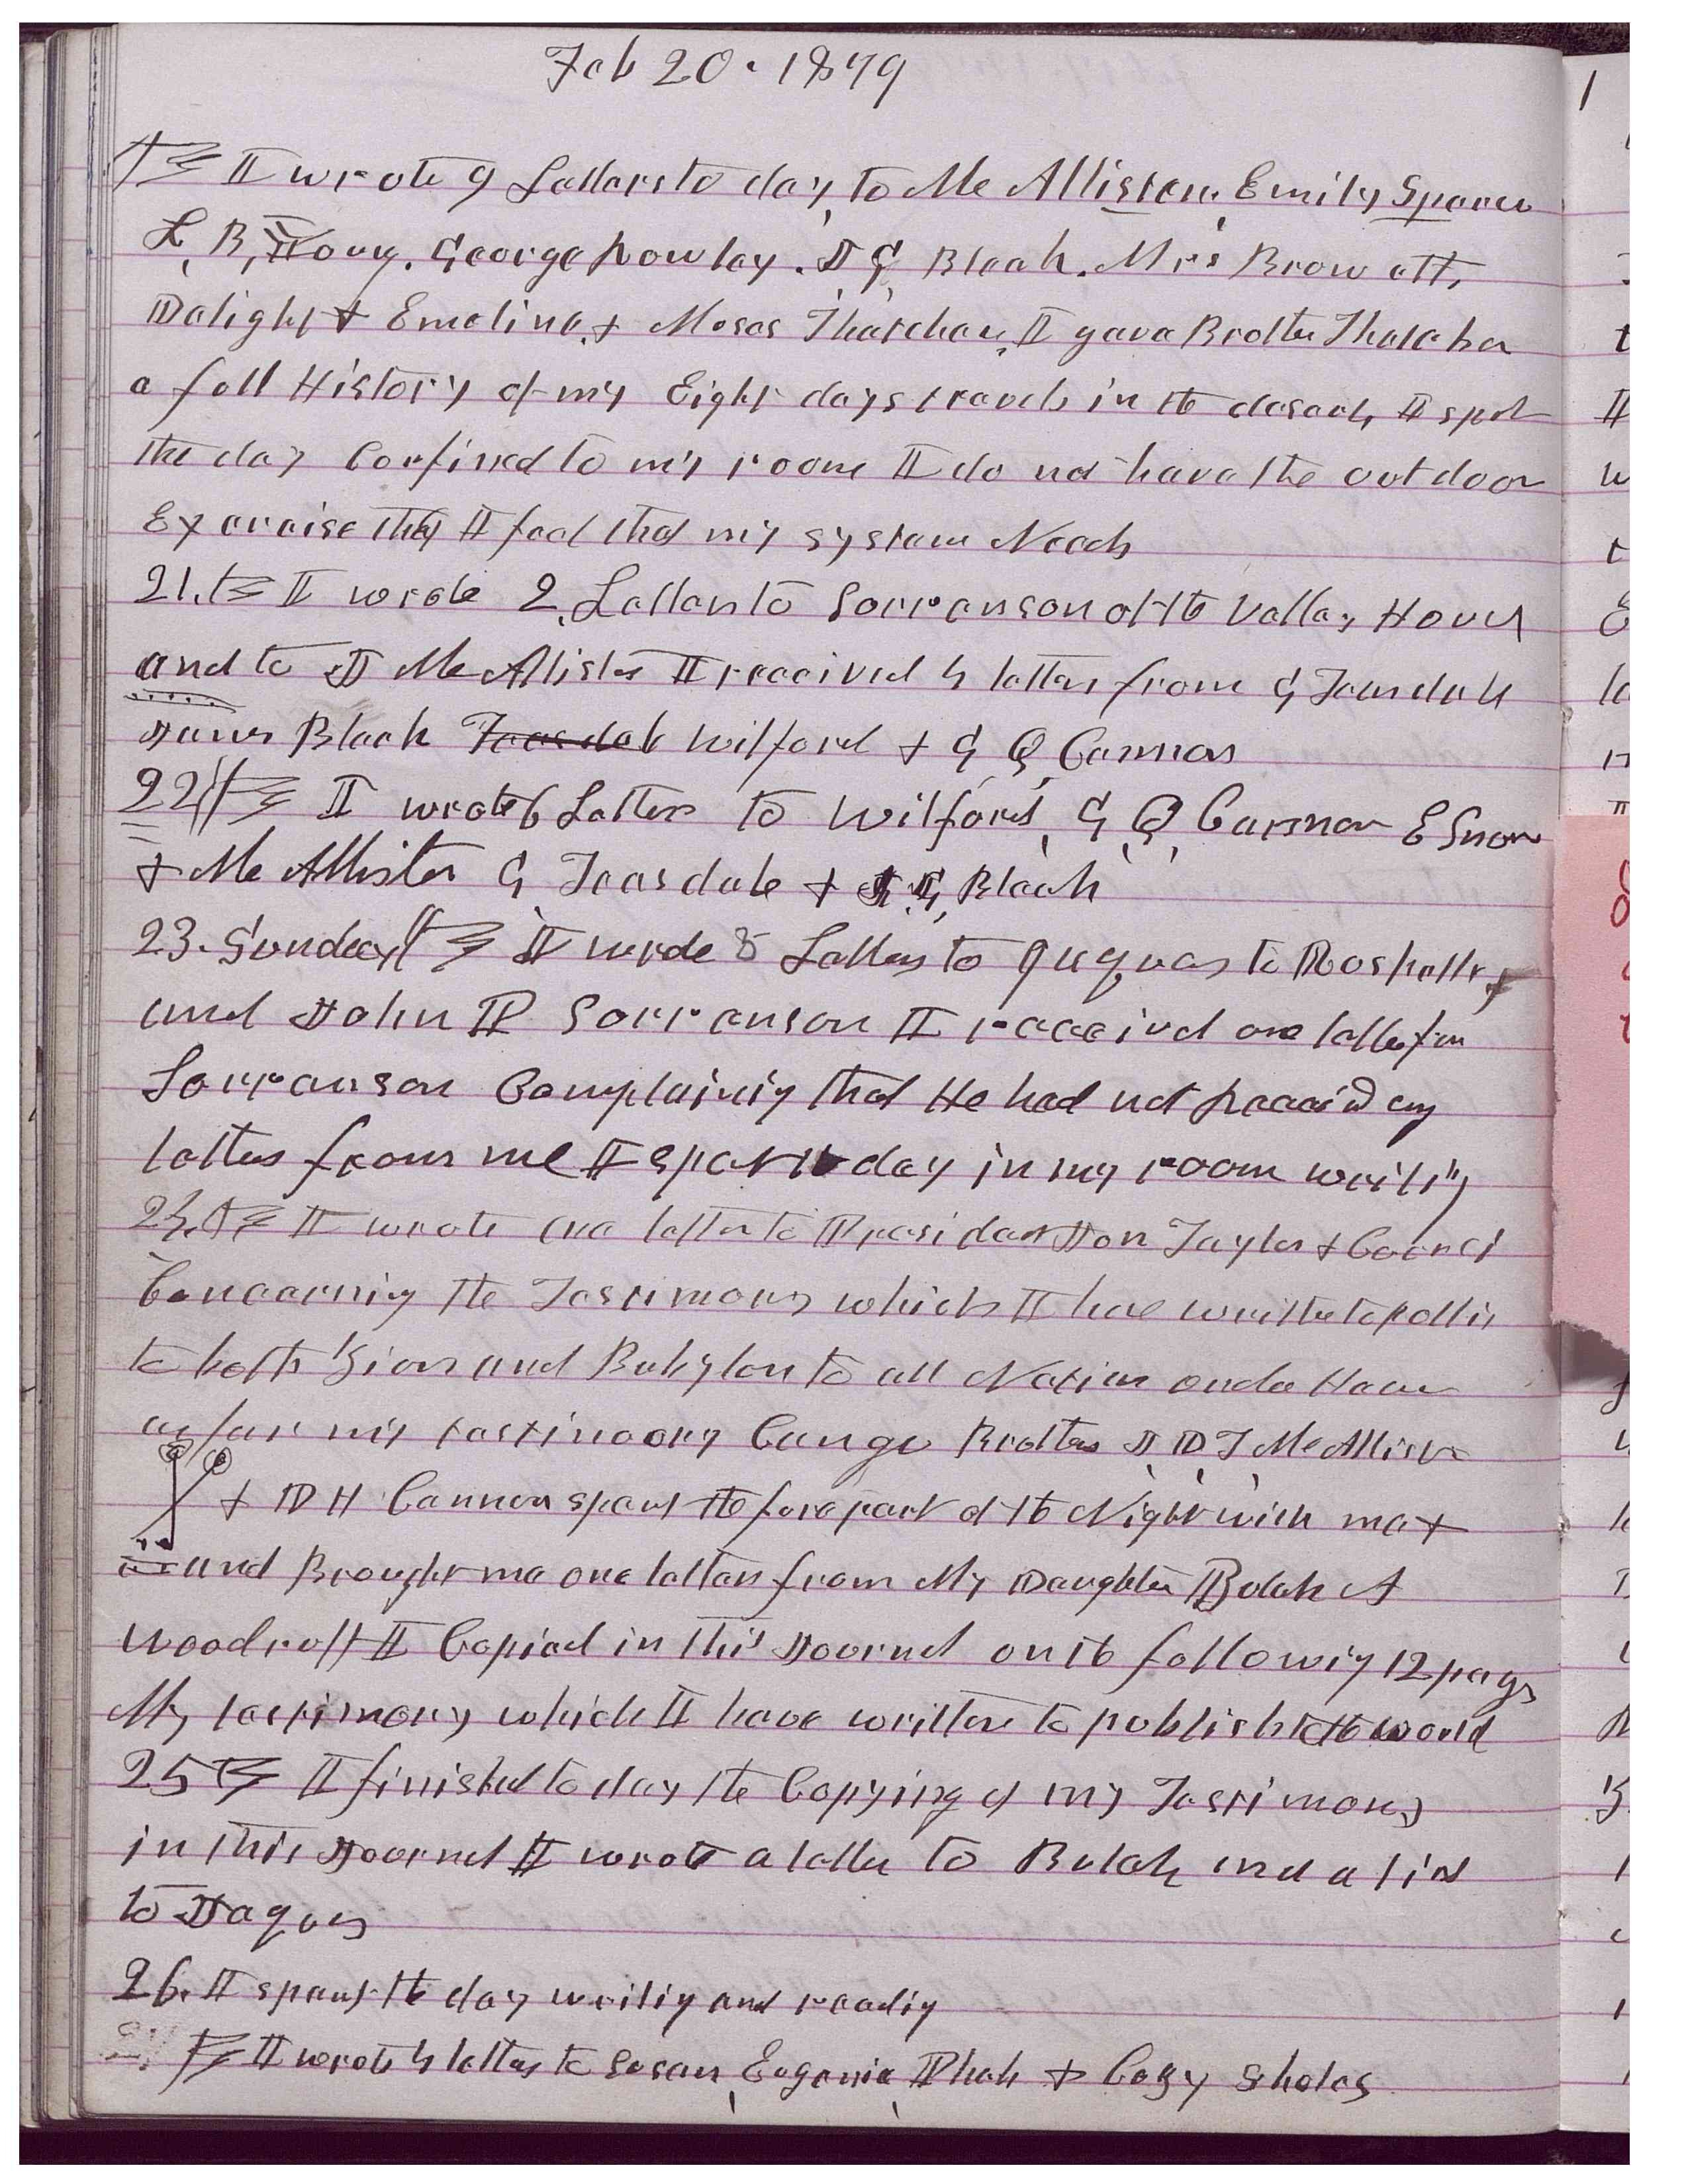 Feb 20. 1879
I wrote 9 Letters to day to McAllister, Emily, Spencer
L, B, Hovey. George Rowley. I G, Bleak. Mrs Browett,
Delight & Emeline, & Moses Thatcher, I gave Brother Thatcher
a full History of my Eight days travels in the desert, I spent
the day Confined to my room I do not have the out door
Exercise that I feel that my system Needs
21. I wrote 2, Letters to Sorranson of the Valley House
and to J McAllister I received 4 letters from G Teasdale
James Bleak Teasdale Wilford & G Q Cannon
22 I wrote 6 Letters to Wilford, G, Q, Cannon E Snow
& McAllister G Teasdale & J, G, Bleak
23. Sunday I wrote 8 Letters to to
and John P Sorranson I received one letter from
Sorranson Complaining that He had not Received any
letters from me I spent the day in my room writing
24. I wrote one letter to President John Taylor & Council
Concerning the Testimony which I have written to publish
to both Zion and Babylon to all Nation under Heaven
as far my testimony Can go Brothers J, D, T McAllister
& D H Cannon spent the fore part of the Night with me &
and Brought me one letter from My Daughter Bulah A
Woodruff I Copied in this Journal on the following 12 pages
My testimony which I have written to publish to the world
25 I finished to day the Copying of my Testimony
in this Journal I wrote a letter to Bulah and a list
to Jaques
26. I spent the day writing and reading
27, I wrote 4 letters to Susan, Eugenia, Phebe & Cozy Scholes